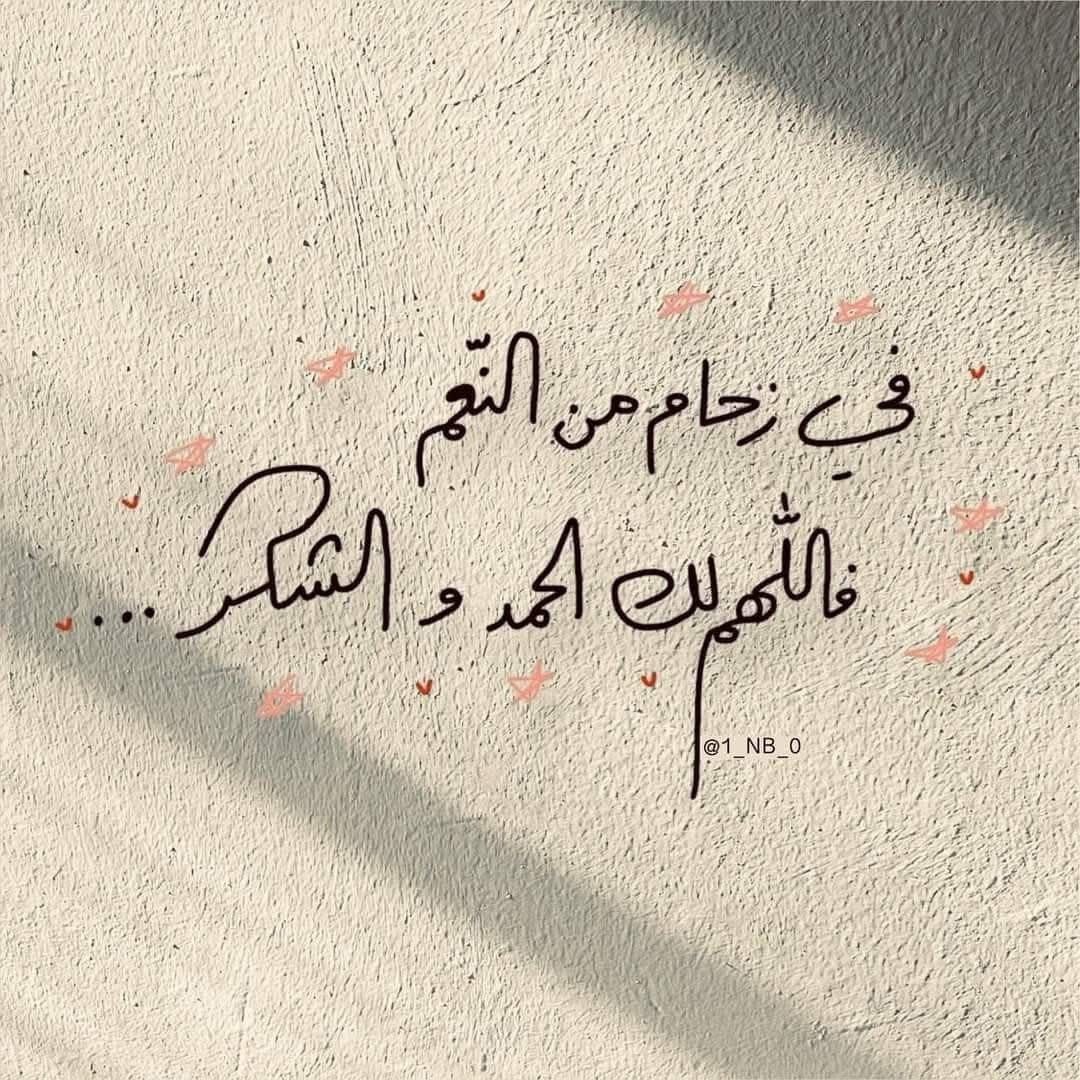 في زحام من النّعم
فاللّهم لك الحمد و الشكر ...
@1_NB_0